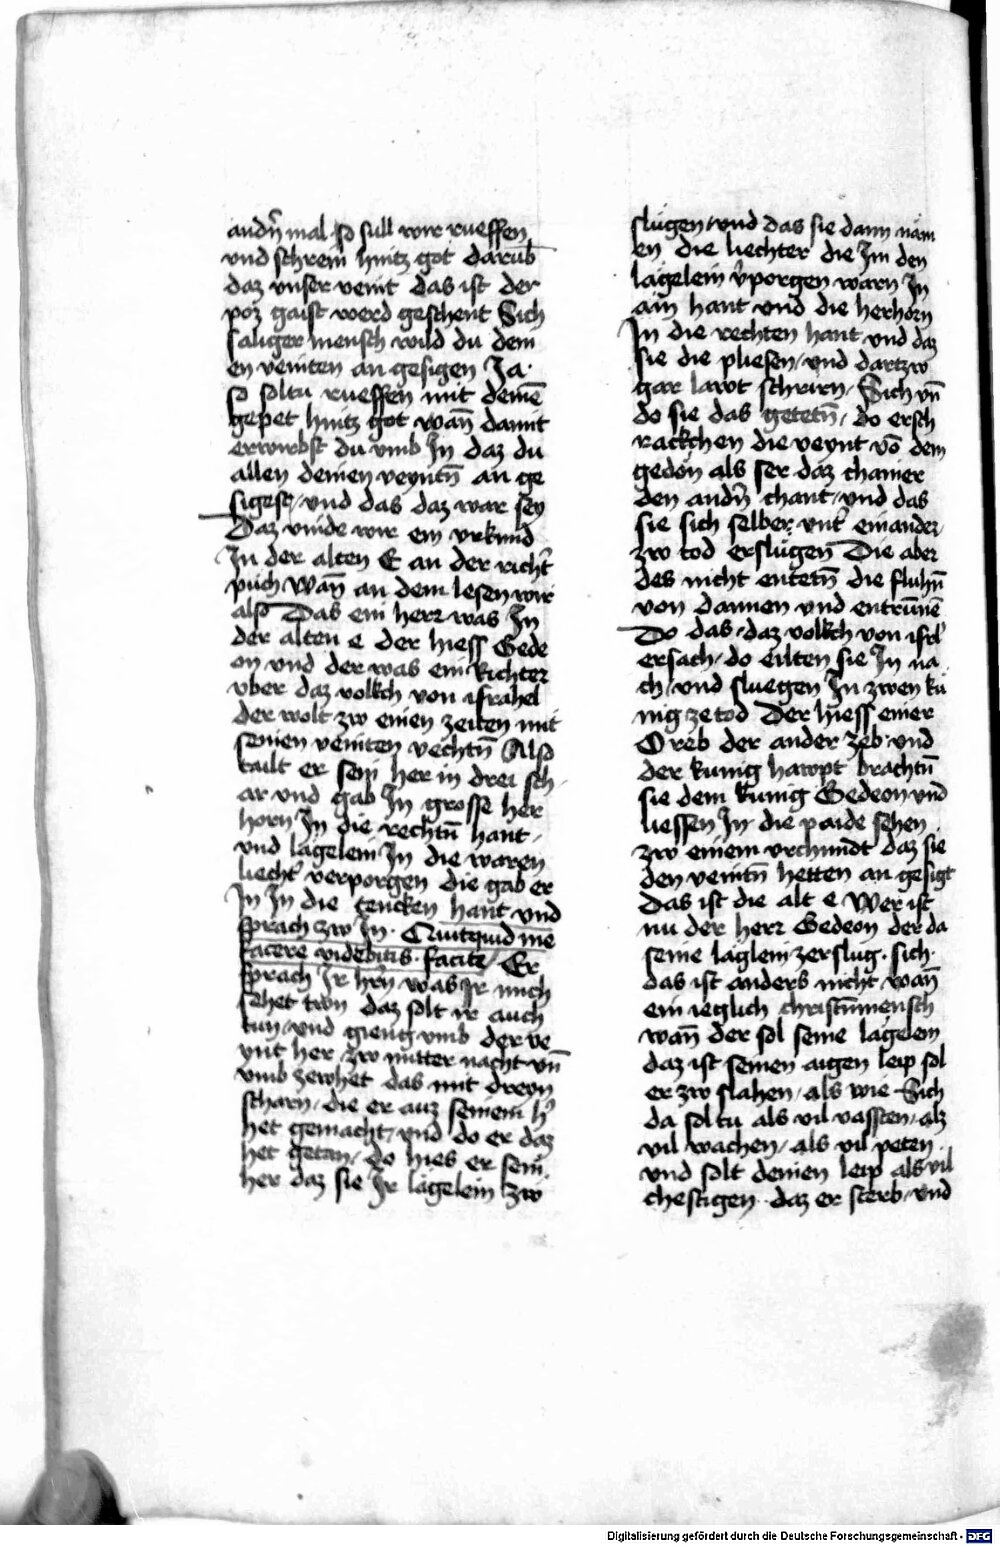 andn̄ mal · so sull wir rueffen
vnd schrein hintz got darūb
daz vnser veint das ist der
pöz gaist werd geschent Sich
saliger mensch wild du dein
en veinten an gesigen Ja ·
so soltu rueffen mit deinē
gepet hintz got wan̄ damit
erwirbst du vmb In daz du
allen deinen veyntn̄ an ge
sigest / vnd das daz war sey
Daz vinde wir ein vrkund
In der alten E an der richt̄
puch wan̄ an dem lesen wir
also Das ein herr was In
der alten e der hiess Gede
on vnd der was ein Richter
vber daz volkch von israhel
der wolt zw einen zeiten mit
seinen veinten vechtn̄ Also
tailt er sein her in drei sch
ar vnd gab In grosse her
horn In die rechtn̄ hant /
vnd lägelein In die waren
liecht̄ verporgen die gab er
In In die tencken hant vnd
sprach zw In · Quitquid me
facere videbitis · facite / Er
sprach Ir hrn̄ was Ir mich
sehet twn daz solt ir auch
tun / vnd gieng vmb der ve
ynt her / zw mitter nacht vn̄
vmb zewhet das mit dreyn
scharn / die er auz seinem h̄
het gemacht / vnd do er daz
het getan / do hies er sein
her daz sie Ir lägelein zw
slügen / vnd das sie dann näm
en die liechter die Im den
lägelein v̄porgen warn In
ain hant vnd die herhorn
In die rechten hant vnd daz
sie die pliesen / vnd dartzw
gar lawt schrirn / Sich vn̄
do sie das getetn̄ / do ersch
rackchen die veynt vō dem
gedön als ser daz chainer
den andn̄ chant / vnd das
sie sich selber vnt̄ einander
zw tod erslügen Die aber
des nicht entetn̄ die fluhn̄
von dannen vnd entrūnē
Do das · daz volkch von isrl̄
ersach / do eilten sie In na
ch / vnd sluegen In zwen kü
nig ze tod Der hiess einer
Oreb der ander zeb · vnd
der kunig hawpt brachtn̄
sie dem kunig Gedeon vnd
liessen In die paide sehen
zw einem vrchundt daz sie
den veintn̄ hetten an gesigt
Das ist die alt e Wer ist
nu der herr Gedeon der da
seine läglein zerslug · sich ·
das ist anders nicht wan̄
ein ieglich christn̄mensch
wan̄ der sol seine lägelein
daz ist seinen aigen leip sol
er zw slahen / als wie Sich
da soltu als vil vassten / alz
vil wachen / als vil peten
vnd solt deinen leip als vil
chestigen · daz er sterb / vnd
Digitalisierung gefördert durch die Deutsche Forschungsgemeinschaft - DFG